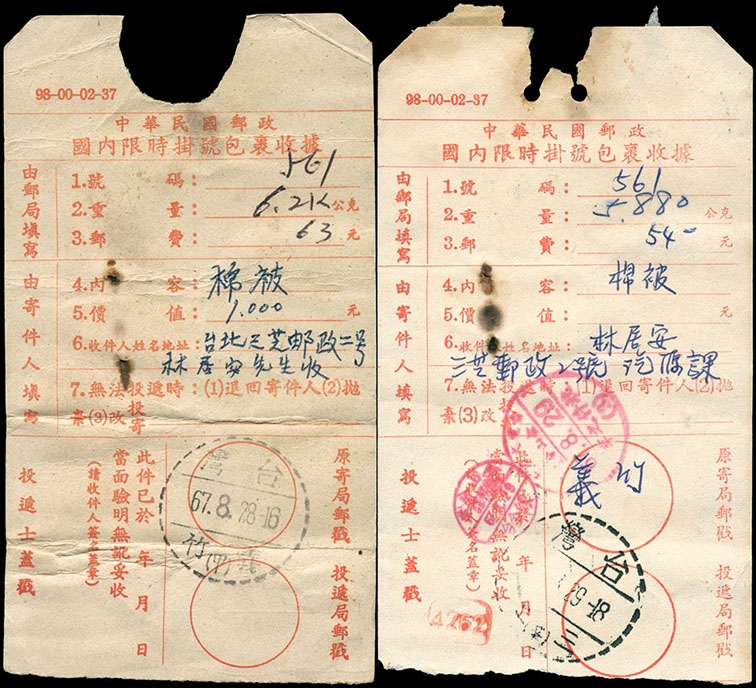 98-00-02-37
中華民國郵政
國內限時掛號包裹收據
由郵局填寫
1.號碼：561
2.重量：6.2K公克
3.郵費：63元
由寄件人填寫
4.內容：棉被
5.價值：1.000元
6.收件人姓名地址：台北三芝邮政二号
林居安先生收
7.無法投遞時：(1)退回寄件人(2)拋
棄(3)改投寄
投遞士蓋戳
此件已於 年 月 日
當面驗明無訛妥收
(請收件人簽名蓋章)
原寄局郵戳
投遞局郵戳
台灣
67.8.28-16
竹(甲)
98-00-02-37
中華民國郵政
國內限時掛號包裹收據
由郵局填寫
1.號碼：561
2.重量：5.880公克
3.郵費：54-元
由寄件人填寫
4.內容：棉被
5.價值：元
6.收件人姓名地址：林居安
三芝郵政2號
課
7.無法投遞時：(1)退回寄件人(2)拋
棄(3)改投寄
投遞士蓋戳
年 月 日
無訛妥收
簽名蓋章)
原寄局郵戳
投遞局郵戳
義竹
台灣
29-18
三
8.29